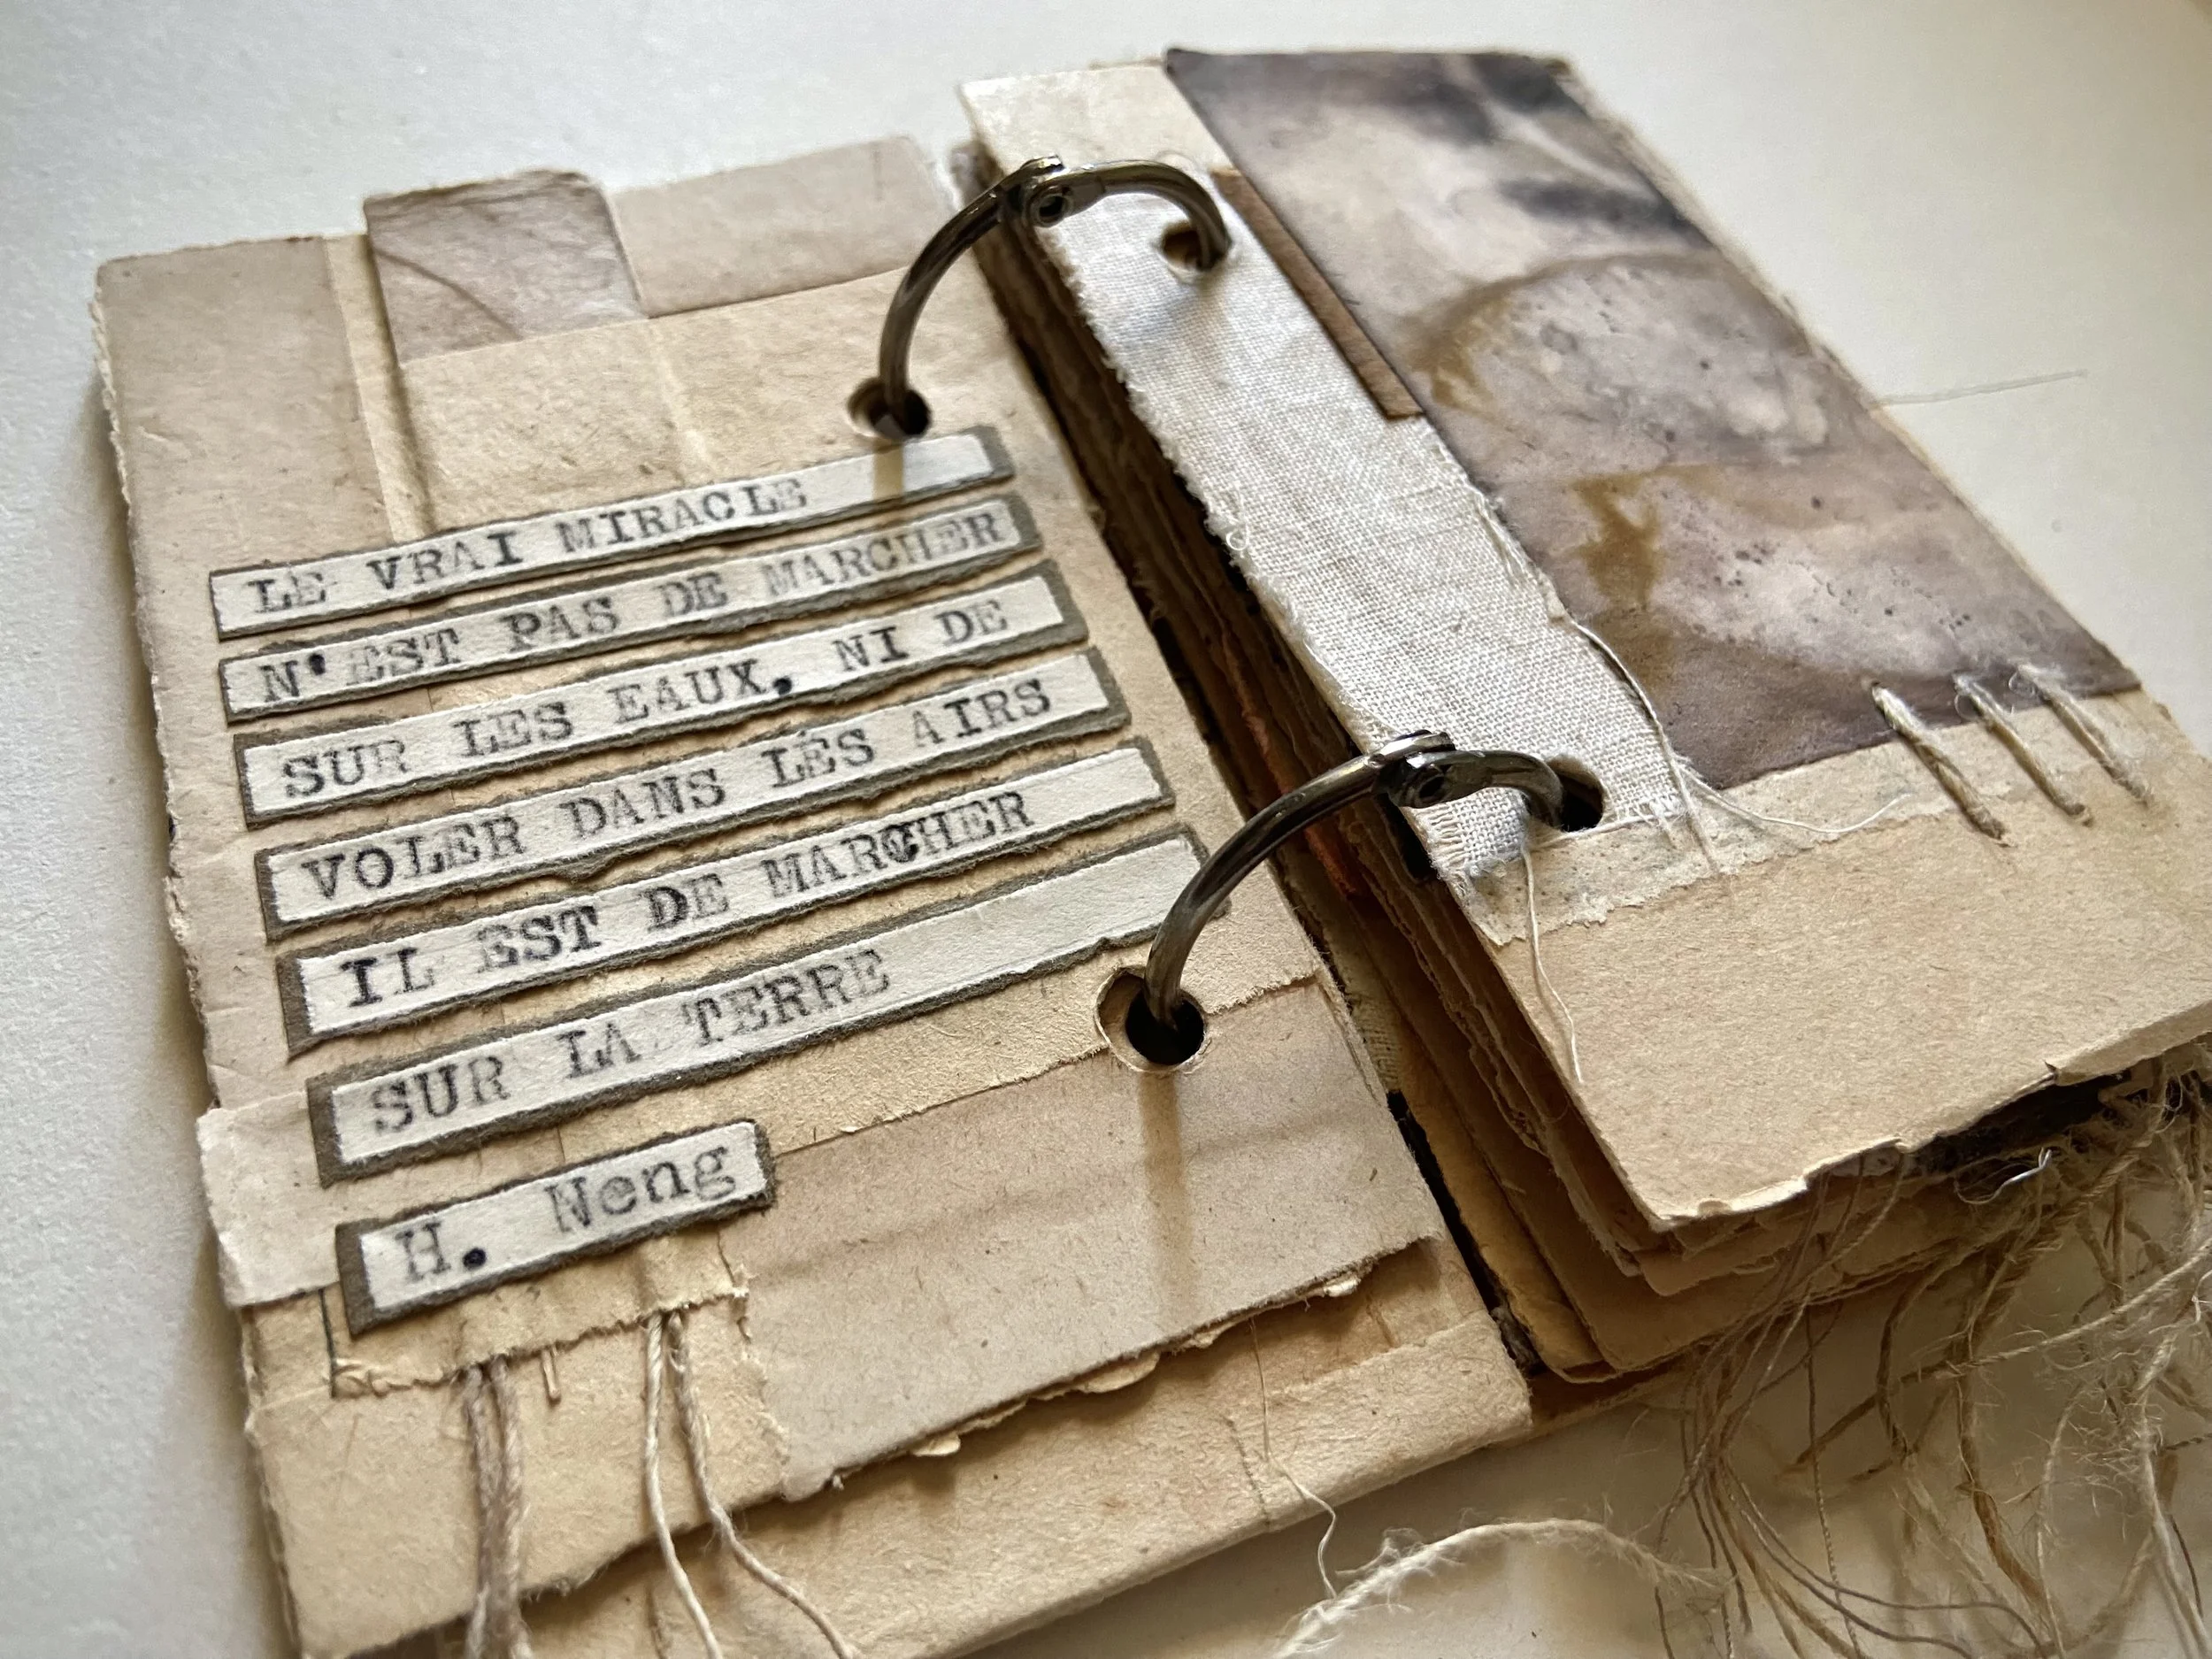 LE VRAI MIRACLE
N'EST PAS DE MARCHER
SUR LES EAUX, NI DE
VOLER DANS LES AIRS
IL EST DE MARCHER
SUR LA TERRE
H. Neng